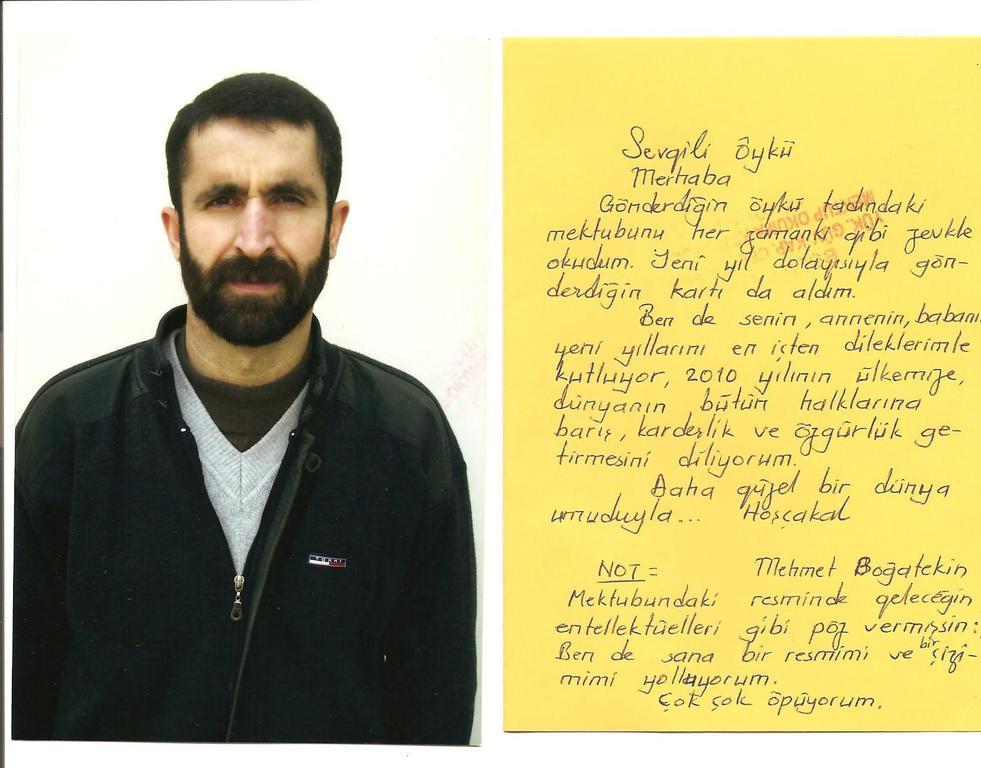 Sevgili Öykü
Merhaba
Gönderdiğin öykü tadındaki
mektubunu her zamanki gibi zevkle
okudum. Yeni yıl dolayısıyla gön-
derdiğin kartı da aldım.
Ben de senin, annenin, babanı
yeni yıllarını en içten dileklerimle
kutluyor, 2010 yılının ülkemize,
dünyanın bütün halklarına
barış, kardeşlik ve özgürlük ge-
tirmesini diliyorum.
Daha güzel bir dünya
umuduyla... Hoşçakal
NOT = Mehmet Boğatekin
Mektubundaki resminde geleceğin
entellektüelleri gibi poz vermişsin:
Ben de sana bir resmimi ve bir çizi-
mimi yolluyorum.
Çok çok öpüyorum.
TOMMY